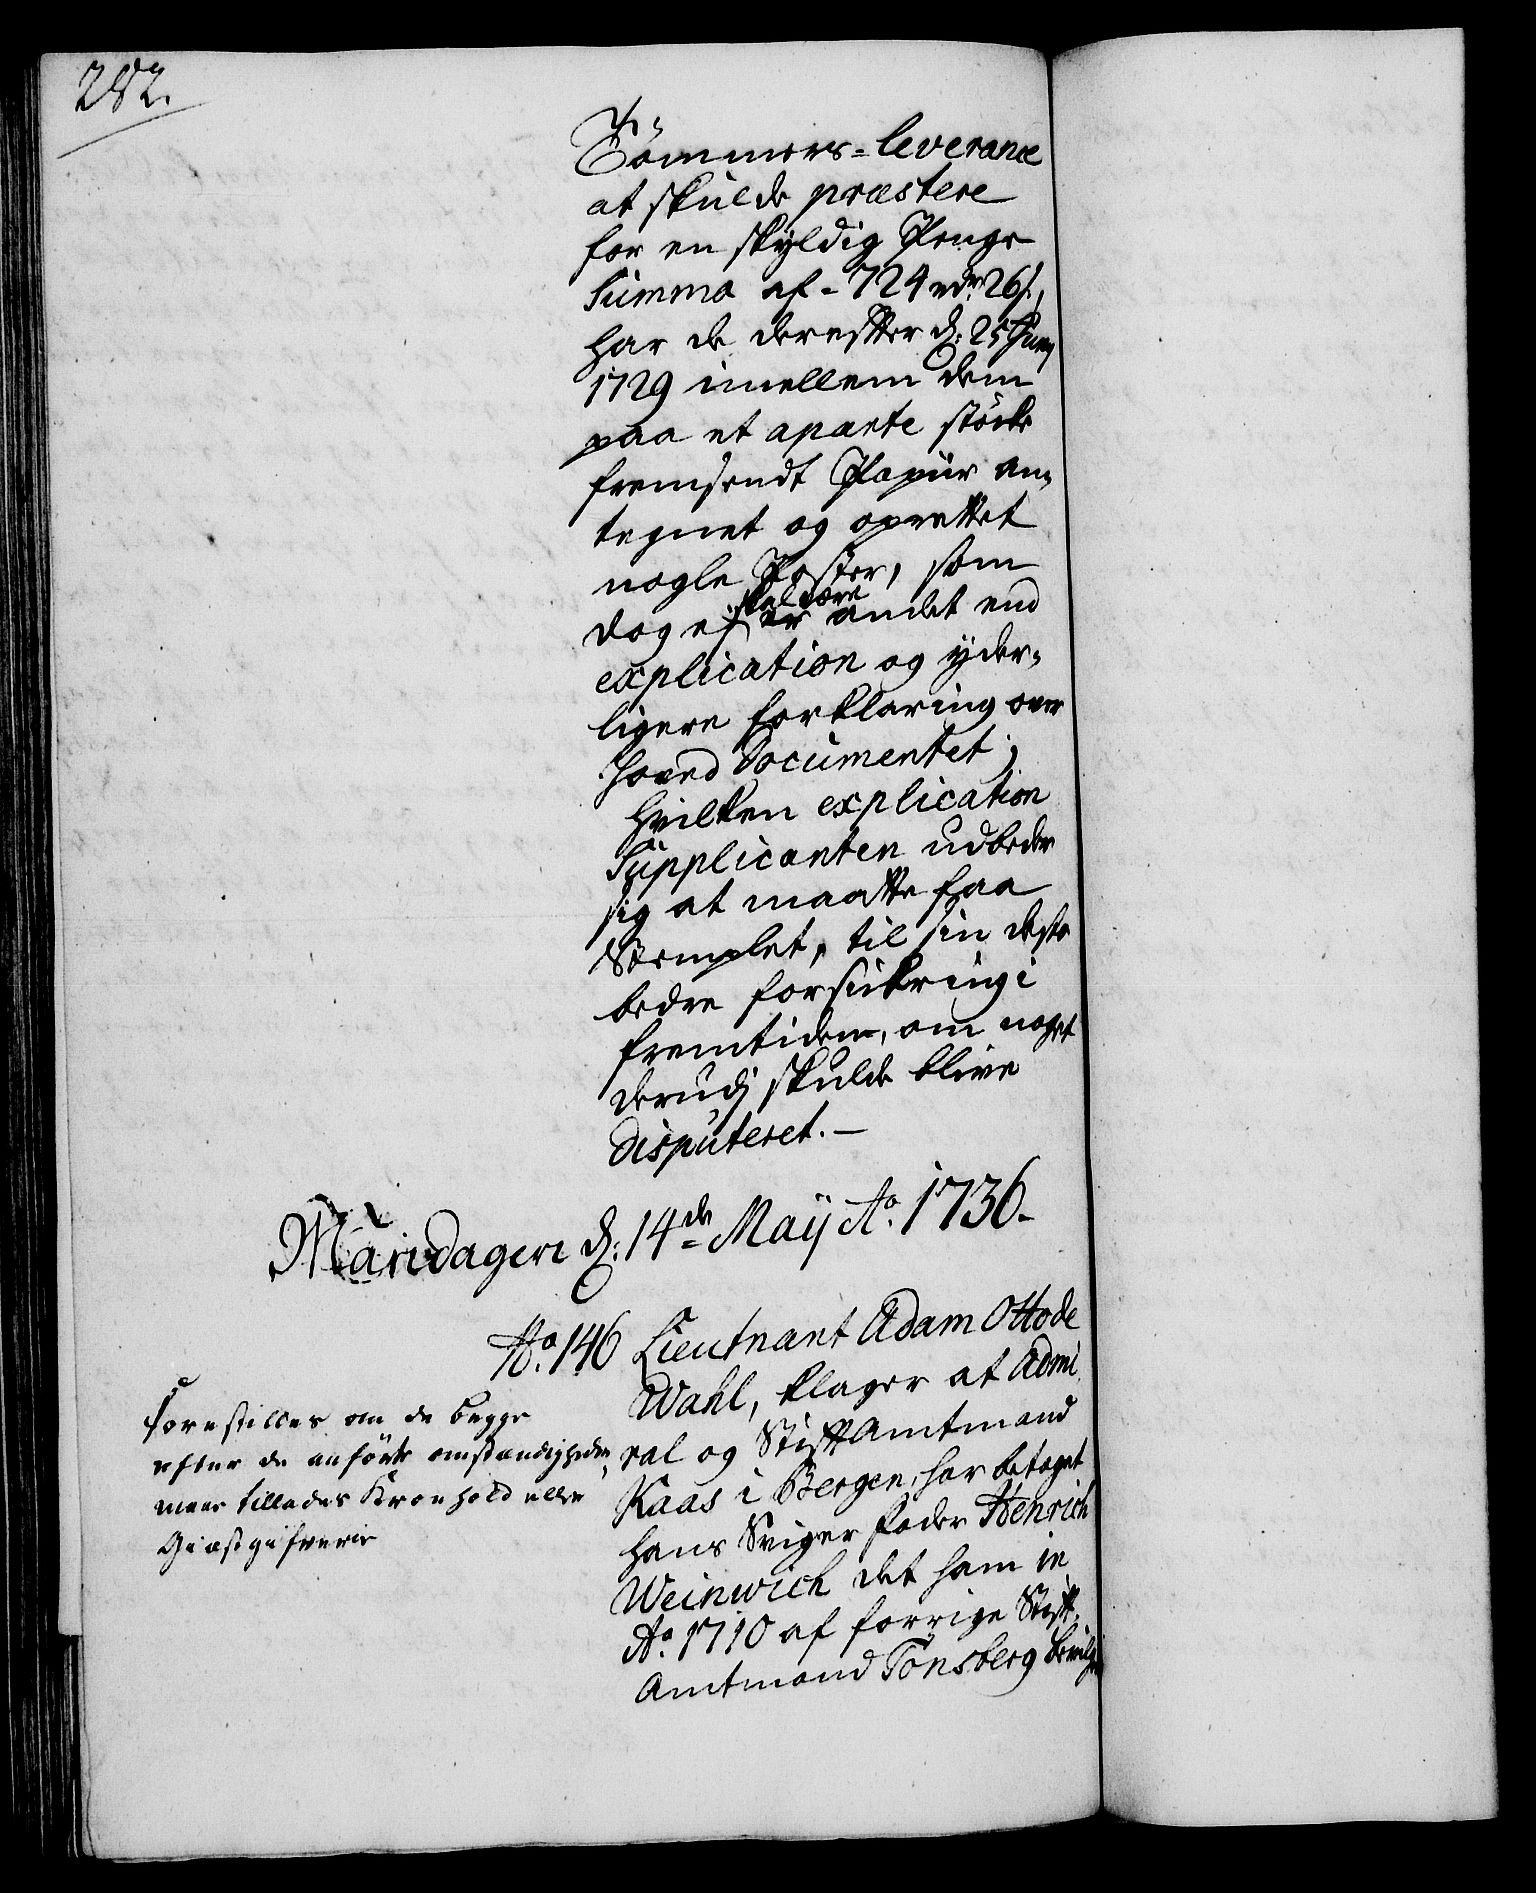 282.
Tömmers-leverance
at skulde præstere
for en skyldig Penge
Summa af - 724 rdr. 26 s,
har de derefter d: 25 Juny
1729 imellem dem
paa et aparte støcke
fremsendt Papiir an-
tegnet og oprettet
nogle Poster, som
dog ej skal være andet end
explication og yder-
ligere forklaring over
hoved Documentet;
hvilken explication
Supplicanten udbeder
sig at maatte faa
Stemplet, til sin desto
bedre forsickring i
fremtiden, om noget
derudj skulde blive
disputeret. —
Mandagen d: 14de Maij Ao. 1736.
No. 146 Lieutnant Adam Otto de
Wahl, klager at Admi
ral og Stiftamtmand
Kaas i Bergen, har betaget
hans Sviger fader Henrich
Weinwich det ham in
Ao. 1710 af forrige Stift-
Amtmand Tønsberg bevilge
Forestilles om de begge
efter de anførte omstændigheder
maae tillades Kroehold eller
Giæstgifverie